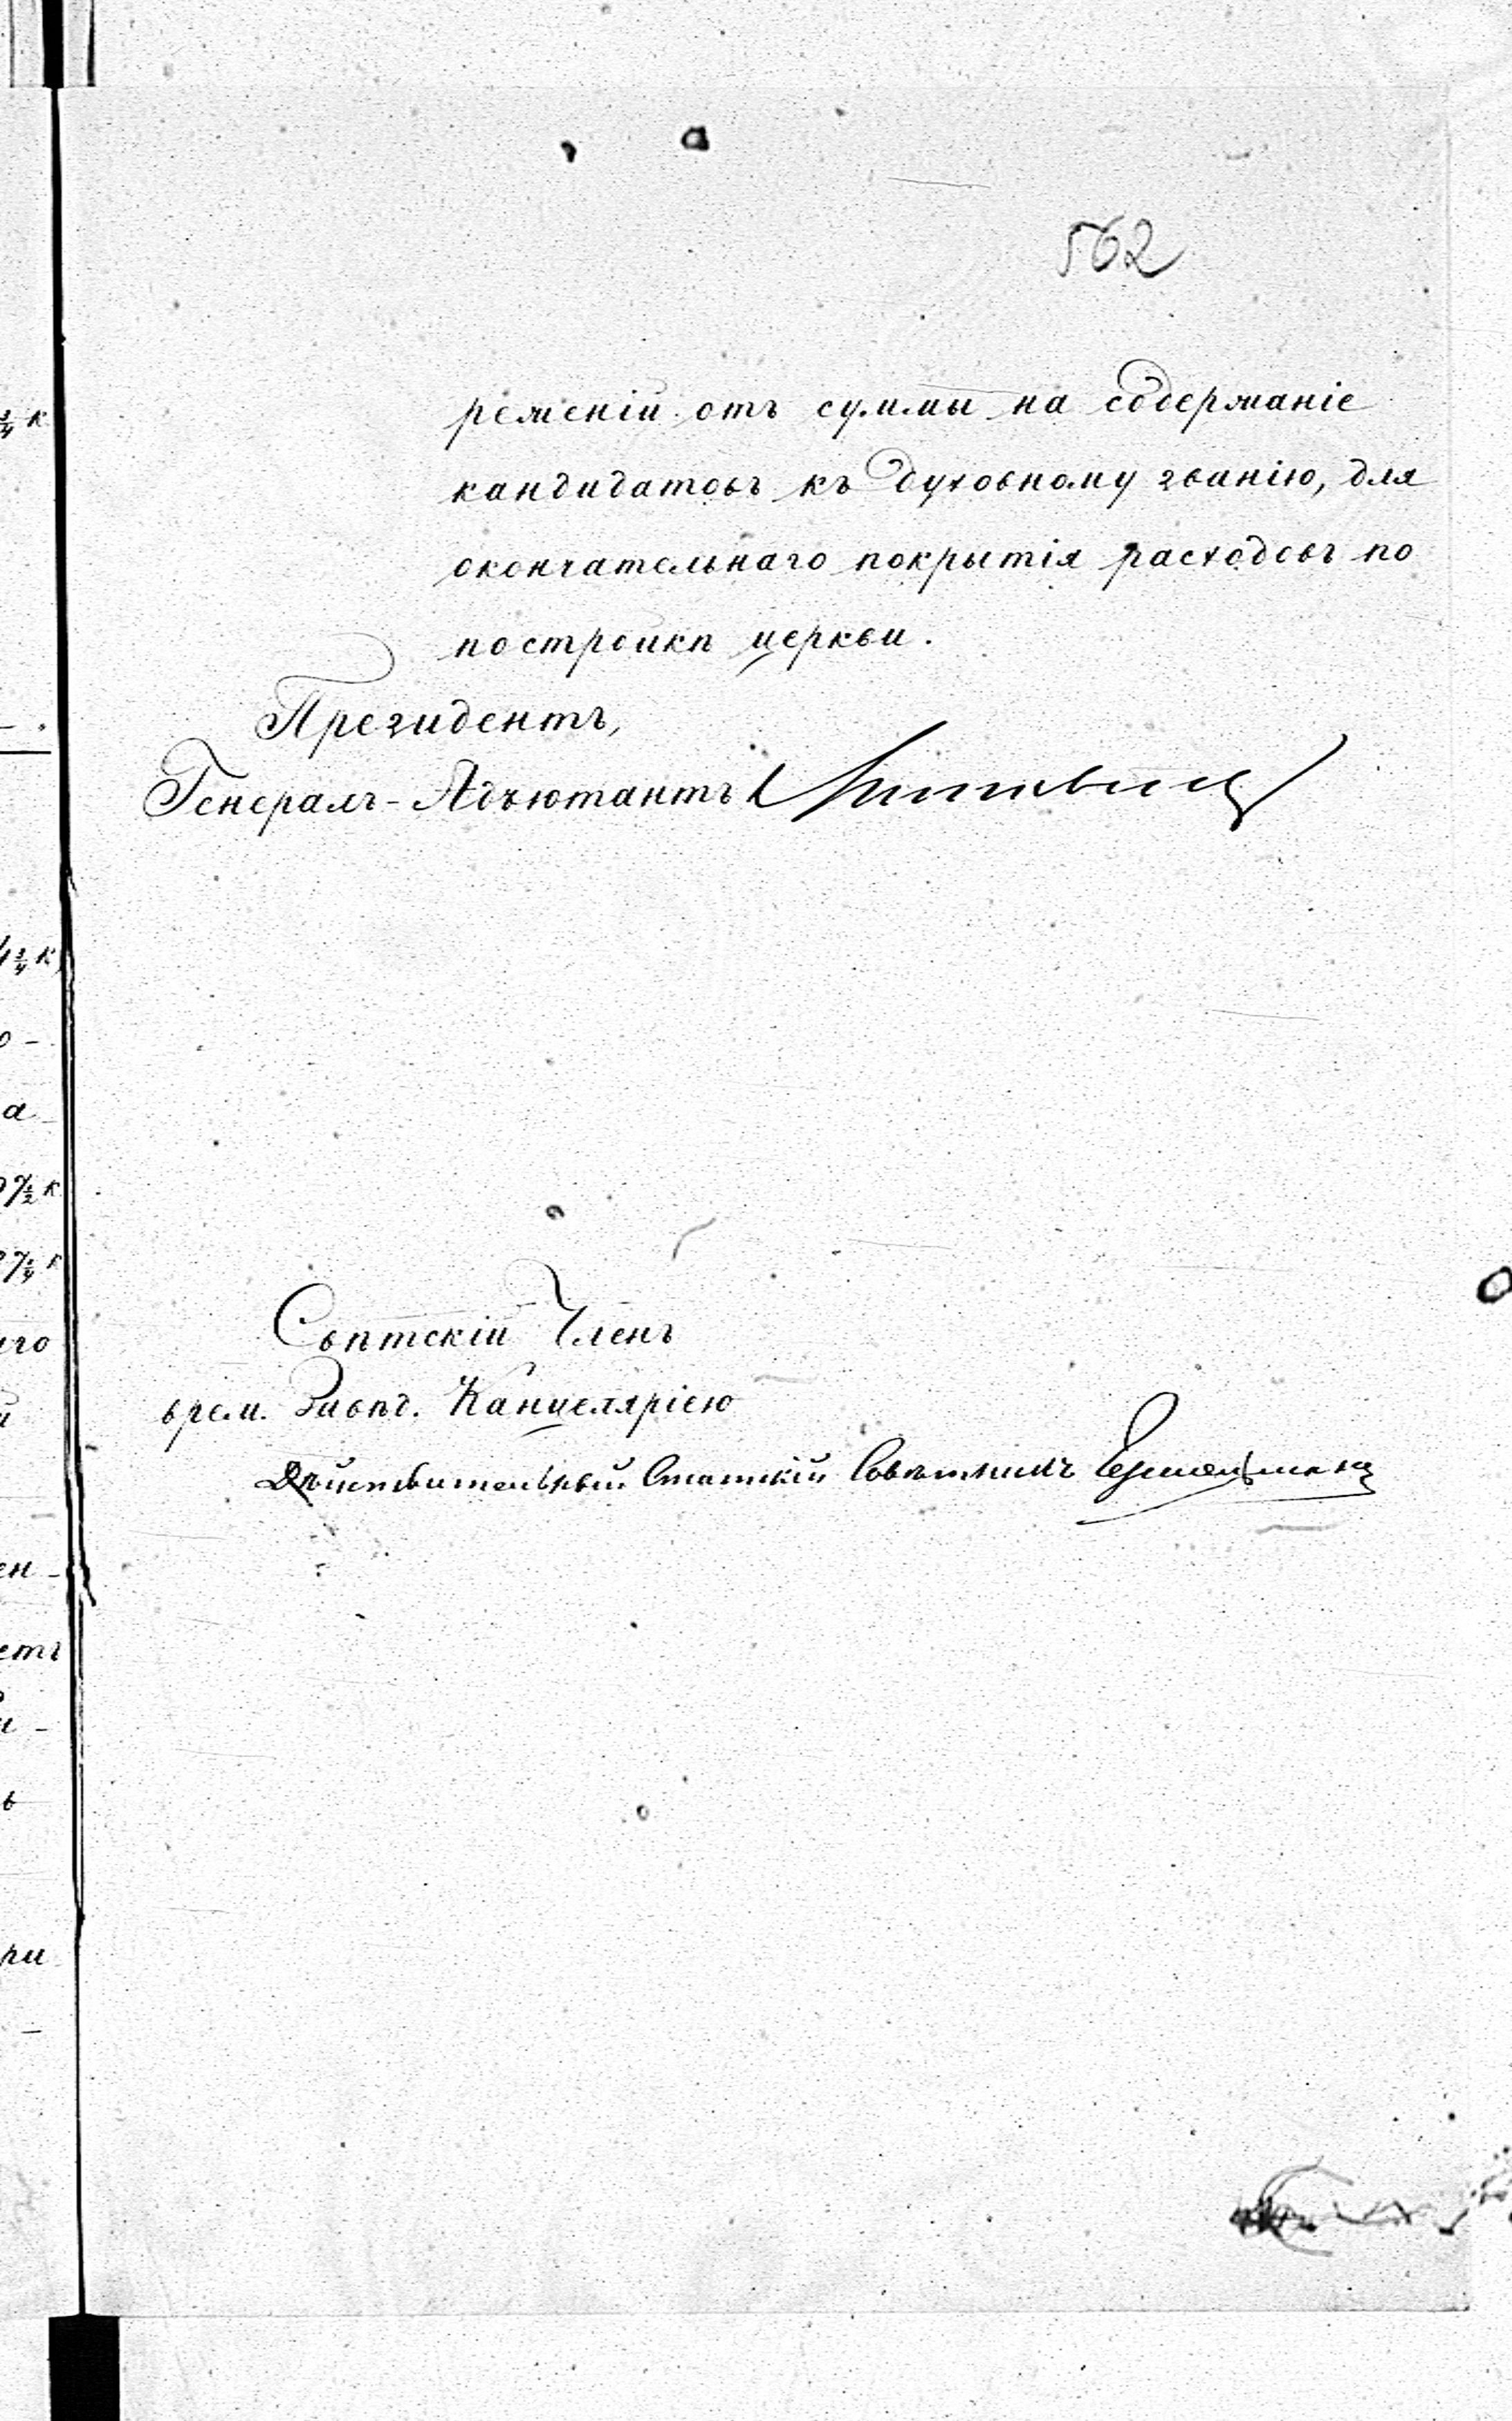 562
реженій отъ суммы на содержаніе
кандидатовъ къ духовному званію, для
окончательнаго покрытія расходовъ по
постройкѣ церкви.
Президентъ,
Генералъ-Адъютантъ
Свѣтскій Членъ
врем. Завѣд. Канцеляріею
Дѣйствительный Статскій Совѣтникъ